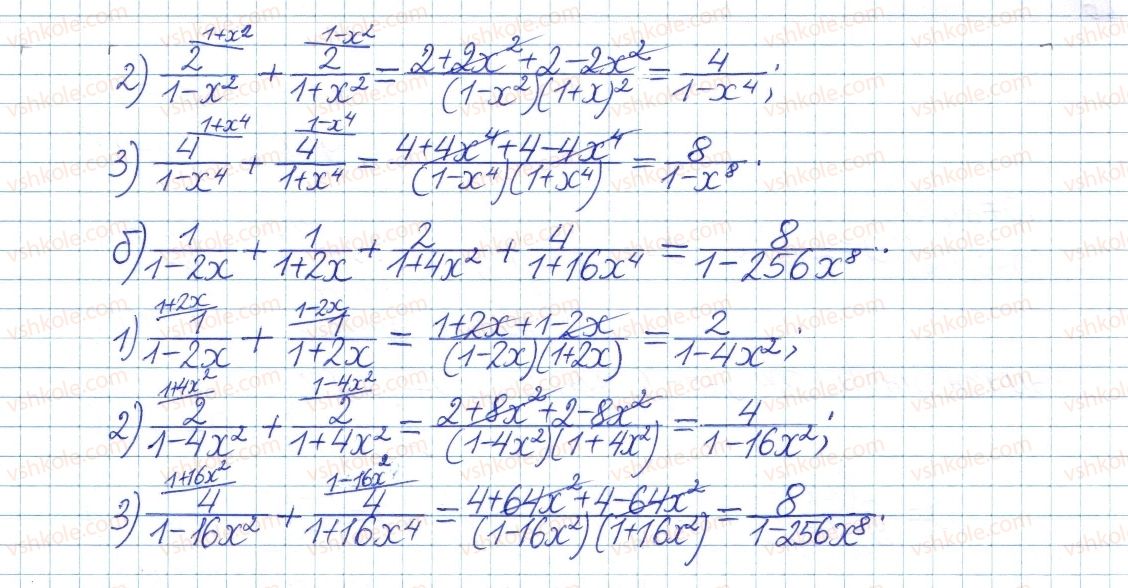 2) 2/(1-x²) ^(1+x²) + 2/(1+x²) ^(1-x²) = (2+2x²+2-2x²)/((1-x²)(1+x)²) = 4/(1-x⁴);
3) 4/(1-x⁴) ^(1+x⁴) + 4/(1+x⁴) ^(1-x⁴) = (4+4x⁴+4-4x⁴)/((1-x⁴)(1+x⁴)) = 8/(1-x⁸).
б) 1/(1-2x) + 1/(1+2x) + 2/(1+4x²) + 4/(1+16x⁴) = 8/(1-256x⁸).
1) 1/(1-2x) ^(1+2x) + 1/(1+2x) ^(1-2x) = (1+2x+1-2x)/((1-2x)(1+2x)) = 2/(1-4x²);
2) 2/(1-4x²) ^(1+4x²) + 2/(1+4x²) ^(1-4x²) = (2+8x²+2-8x²)/((1-4x²)(1+4x²)) = 4/(1-16x²);
3) 4/(1-16x²) ^(1+16x²) + 4/(1+16x⁴) ^(1-16x²) = (4+64x²+4-64x²)/((1-16x²)(1+16x²)) = 8/(1-256x⁸).
vshkole.com